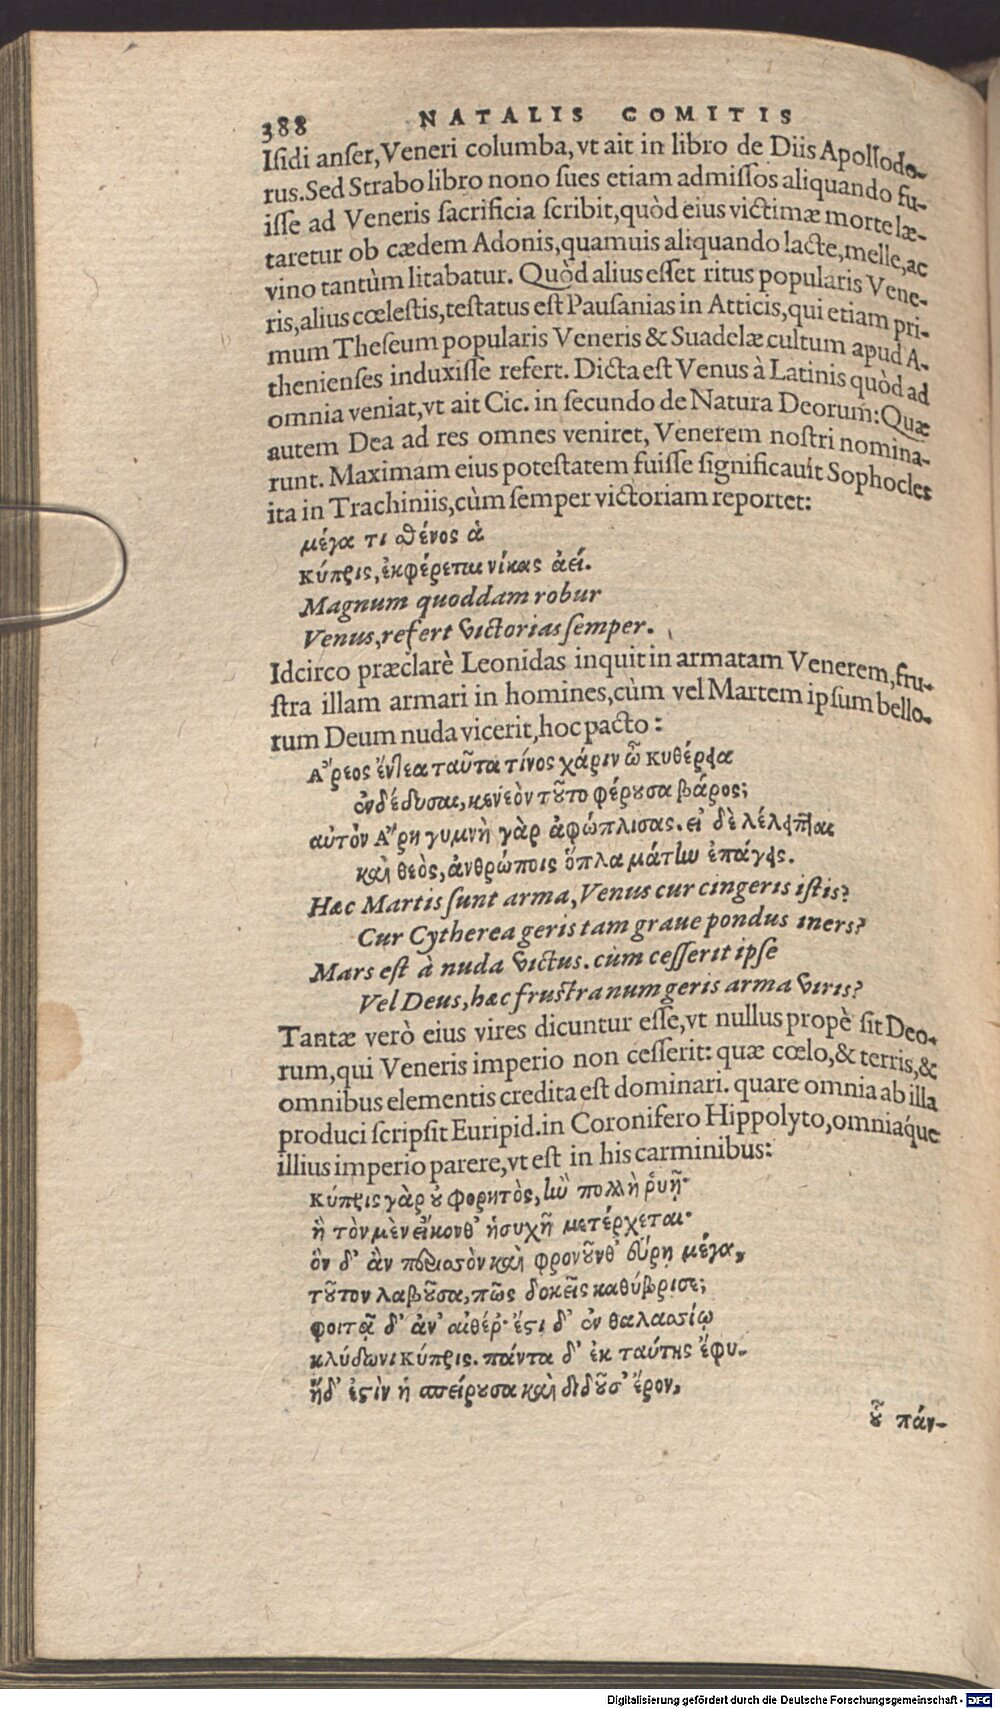 388 NATALIS COMITIS
Iſidi anſer, Veneri columba, vt ait in libro de Diis Apollodo-
rus. Sed Strabo libro nono ſues etiam admiſſos aliquando fu-
iſſe ad Veneris ſacrificia ſcribit, quòd eius victimæ morte læ-
taretur ob cædem Adonis, quamuis aliquando lacte, melle, ac
vino tantùm litabatur. Quòd alius eſſet ritus popularis Vene-
ris, alius cœleſtis, teſtatus eſt Pauſanias in Atticis, qui etiam pri-
mum Theſeum popularis Veneris & Suadelæ cultum apud A-
thenienſes induxiſſe refert. Dicta eſt Venus à Latinis quòd ad
omnia veniat, vt ait Cic. in ſecundo de Natura Deorum: Quæ
autem Dea ad res omnes veniret, Venerem noſtri nomina-
runt. Maximam eius poteſtatem fuiſſe ſignificauit Sophocles
ita in Trachiniis, cùm ſemper victoriam reportet:
μέγα τι σθένος ἁ
κύπρις, ἐκφέρεται νίκας ἀεί.
Magnum quoddam robur
Venus, refert victorias ſemper.
Idcirco præclarè Leonidas inquit in armatam Venerem, fru-
ſtra illam armari in homines, cùm vel Martem ipſum bello-
rum Deum nuda vicerit, hoc pacto:
Ἄρεος ἔντεα ταῦτα τίνος χάριν ὦ κυθέρεια
ἐνδέδυσαι, κενεὸν τοῦτο φέρουσα βάρος;
αὐτὸν Ἄρη γυμνὴ γὰρ ἀφώπλισας. εἰ δὲ λέλειπται
καὶ θεὸς, ἀνθρώποις ὅπλα μάτην ἐπάγεις.
Hæc Martis ſunt arma, Venus cur cingeris iſtis?
Cur Cytherea geris tam graue pondus iners?
Mars eſt à nuda victus. cùm ceſſerit ipſe
Vel Deus, hæc fruſtra num geris arma viris?
Tantæ verò eius vires dicuntur eſſe, vt nullus propè ſit Deo-
rum, qui Veneris imperio non ceſſerit: quæ cœlo, & terris, &
omnibus elementis credita eſt dominari. quare omnia ab illa
produci ſcripſit Euripid. in Coronifero Hippolyto, omniáque
illius imperio parere, vt eſt in his carminibus:
κύπρις γὰρ οὐ φορητὸς, ἢν πολλὴ ῥυῇ·
ἣ τὸν μὲν εἴκονθ’ ἡσυχῆ μετέρχεται·
ὃν δ’ ἂν περισσὸν καὶ φρονοῦνθ’ εὕρῃ μέγα,
τοῦτον λαβοῦσα, πῶς δοκεῖς καθύβρισε;
φοιτᾷ δ’ ἀν’ αἰθέρ’· ἔστι δ’ ἐν θαλασσίῳ
κλύδωνι κύπρις. πάντα δ’ ἐκ ταύτης ἔφυ.
ἥδ’ ἐστὶν ἡ σπείρουσα καὶ διδοῦσ’ ἔρον,
οὗ πάν-
Digitalisierung gefördert durch die Deutsche Forschungsgemeinschaft - DFG